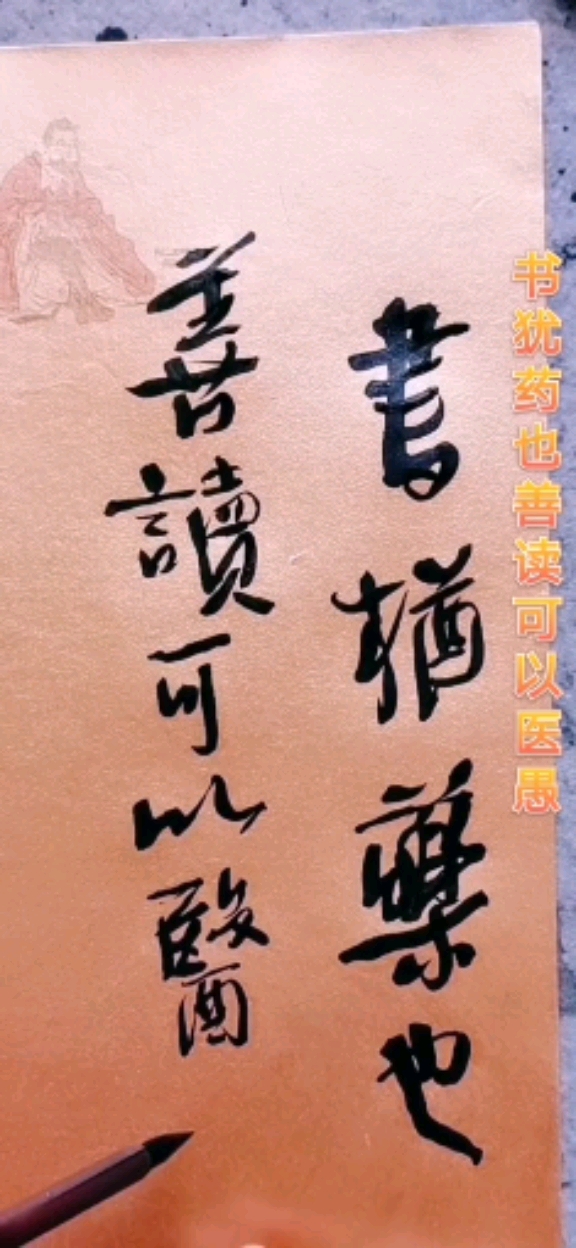 書猶藥也
善讀可以醫
书犹药也善读可以医愚